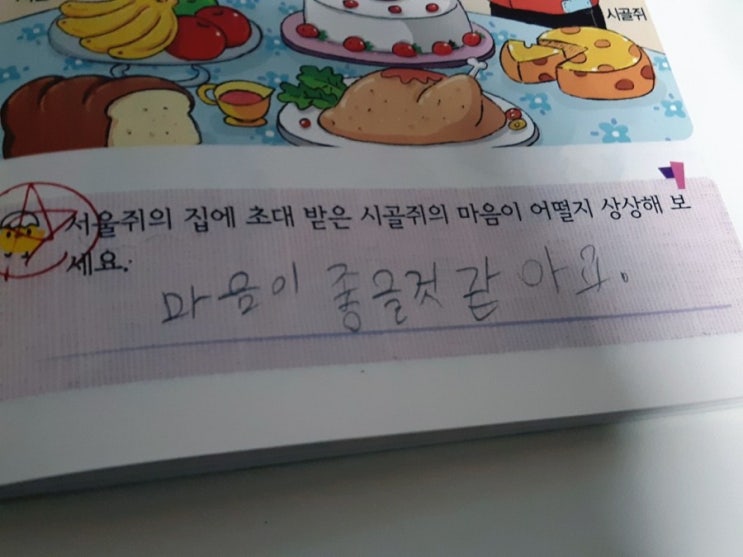 시골쥐
서울쥐의 집에 초대 받은 시골쥐의 마음이 어떨지 상상해 보
세요.
마음이 좋을것 같아요.